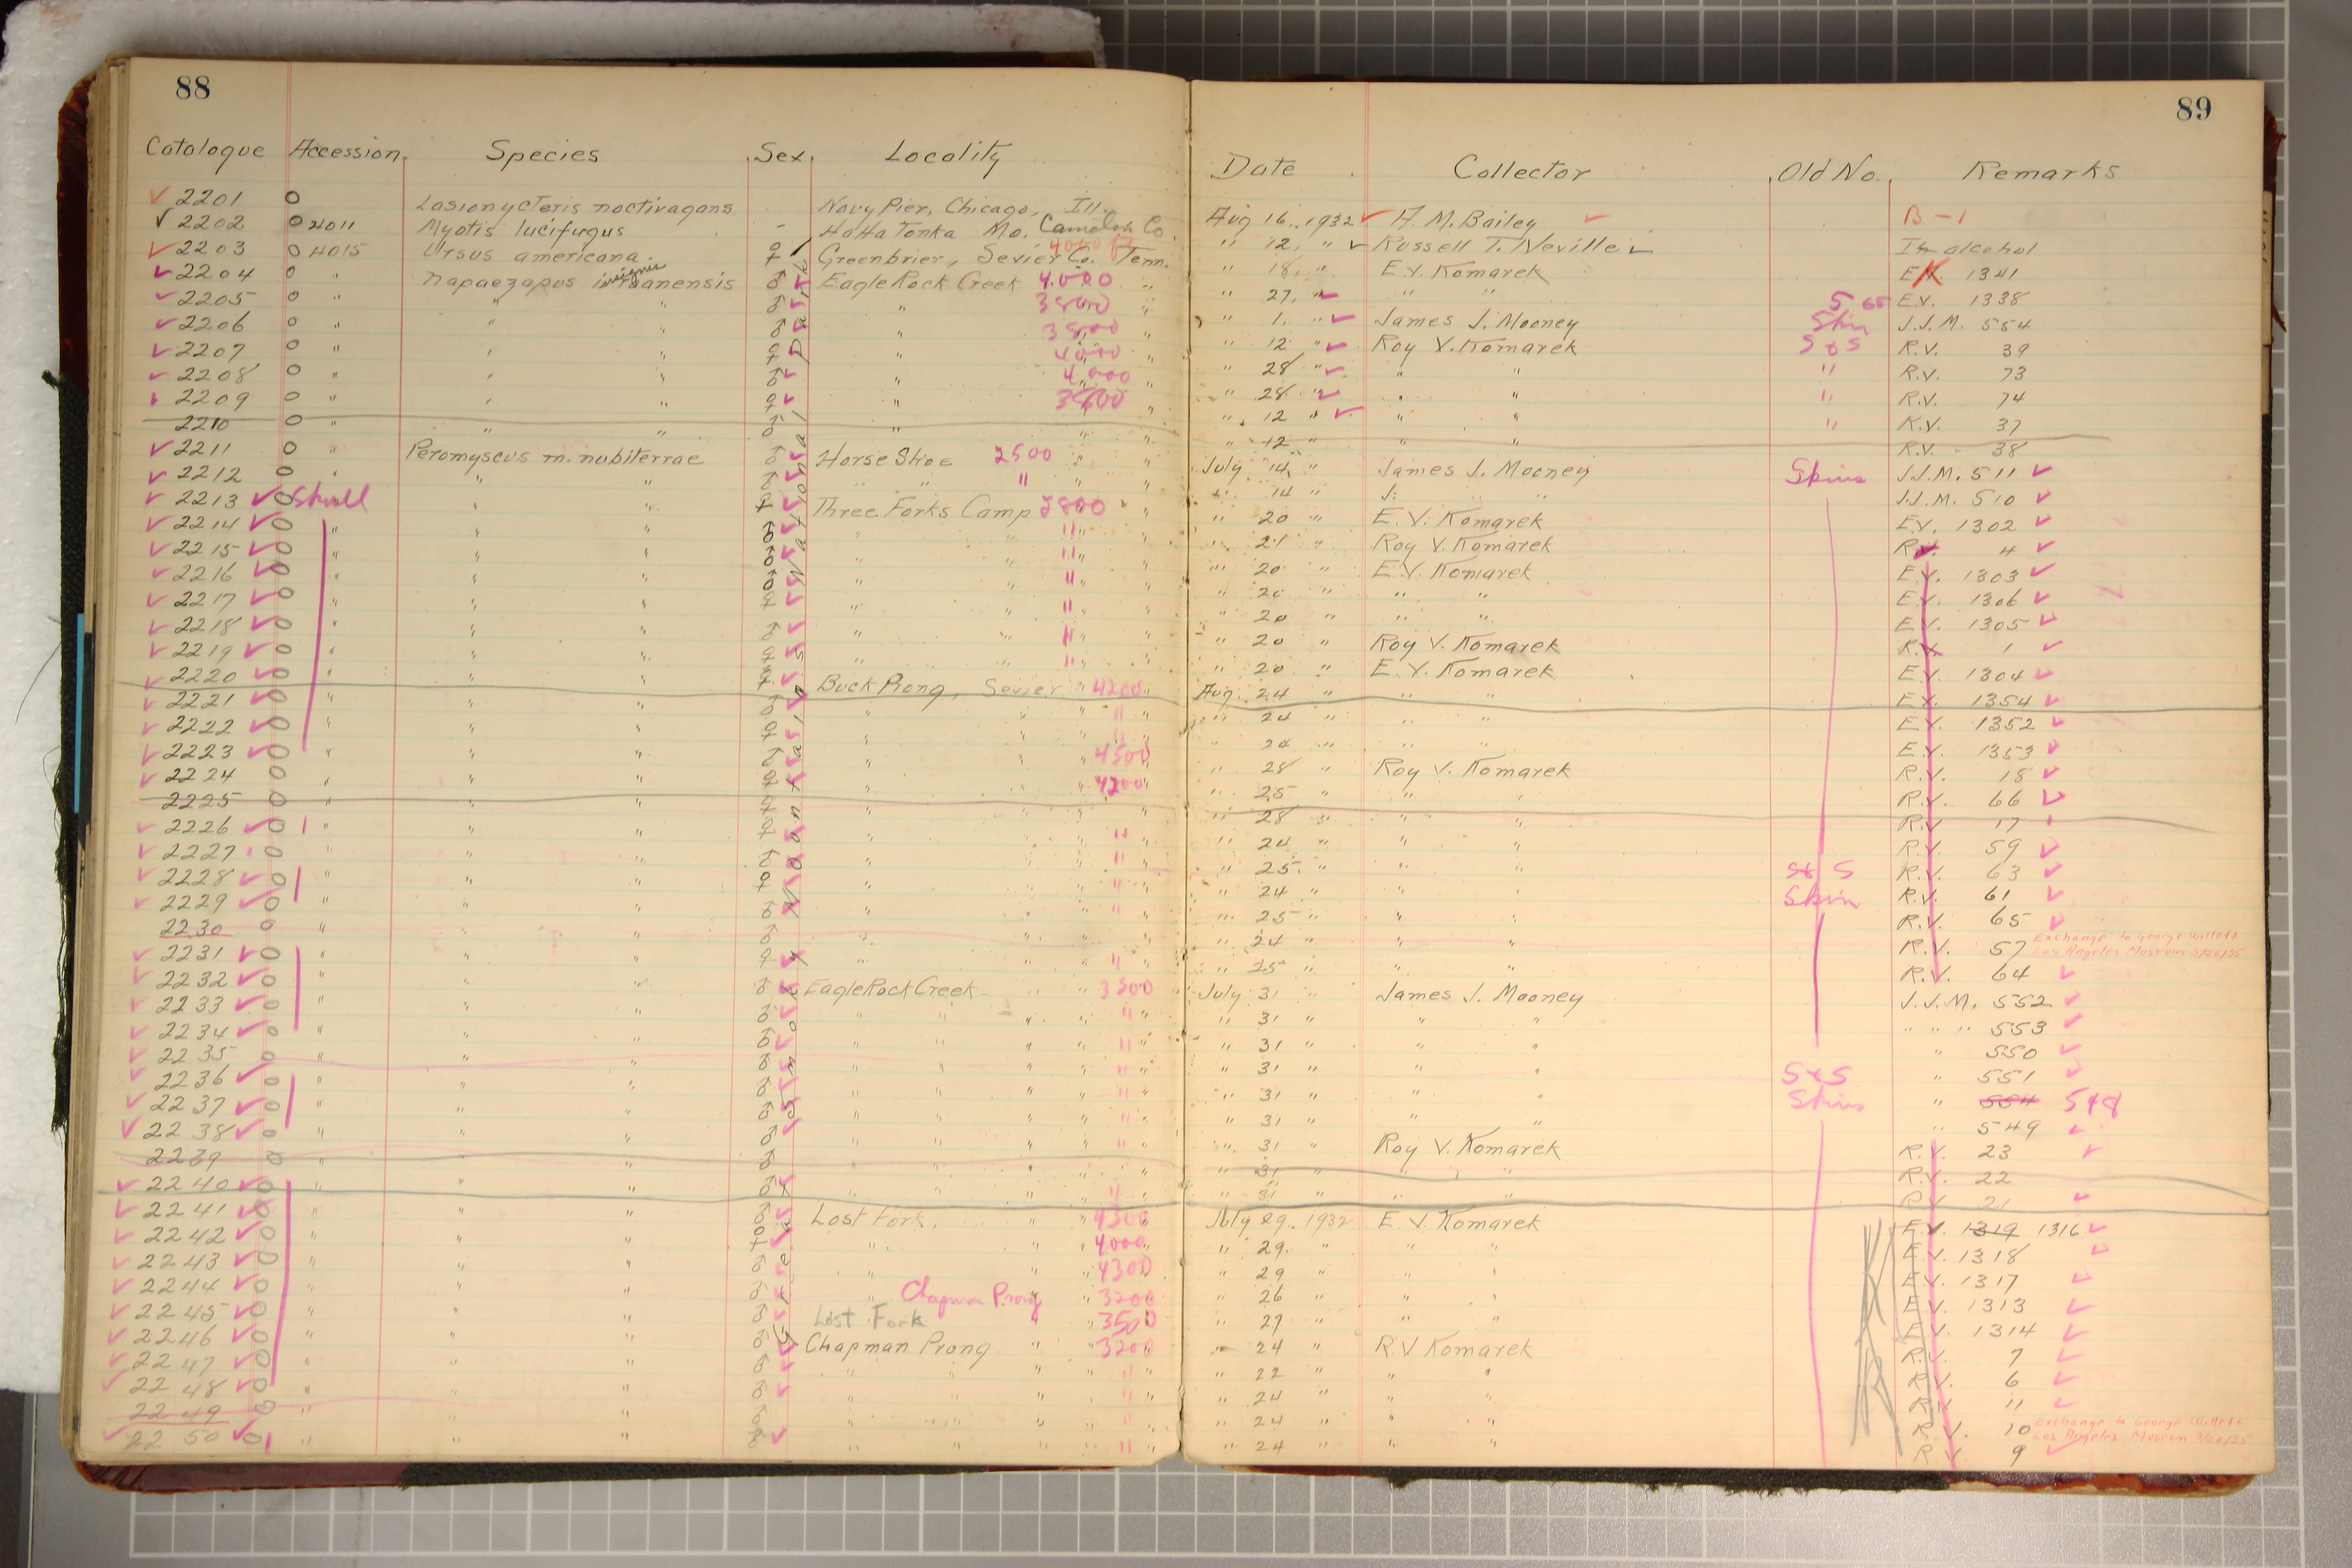 88
89
Catalogue Accession Species Sex Locality Date Collector Old No. Remarks
2201 O Lasionycteris noctivagans Navy Pier, Chicago, Ill. Aug 16, 1932 A. M. Bailey B-1
2202 O 4011 Myotis lucifugus - HaHa Tonka Mo. Camden Co " 12, " Russell T. Neville In alcohol
2203 O 4015 Ursus americana ♀ Greenbrier, Sevier Co. 4000 ft Tenn. " 18, " E.V. Komarek E.V. 1341
2204 O " Napaeozapus insignis roanensis ♂ Eagle Rock Creek 4000 " " 27, " " " S & S E.V. 1338
2205 O " " " ♂ " 3800 " " 1. " James J. Mooney Skin J.J.M. 554
2206 O " " " ♂ " 3800 " " 12 " Roy V. Komarek S & S R.V. 39
2207 O " " " ♀ " 4000 " " 28 " " " " R.V. 73
2208 O " " " ♂ " 4000 " " 28 " " " " R.V. 74
2209 O " " " ♀ " 3800 " " 12 " " " " R.V. 37
2210 O " " " ♂ " " " " 12 " " " R.V. 38
2211 O " Peromyscus m. nubiterrae ♂ Horse Shoe 2500 " " July 14, " James J. Mooney Skins J.J.M. 511
2212 O " " " ♂ " " " " " " 14 " J. " " J.J.M. 510
2213 O Skull " " ♀ Three Forks Camp 2800 " " " 20 " E. V. Komarek E.V. 1302
2214 O " " " ♂ " " " " " " 21 " Roy V. Komarek R.V. 4
2215 O " " " ♂ " " " " " " 20 " E.V. Komarek E.V. 1303
2216 O " " " ♂ " " " " " " 20 " " " E.V. 1306
2217 O " " " ♀ " " " " " " 20 " " " E.V. 1305
2218 O " " " ♂ " " " " " " 20 " Roy V. Komarek R.V. 1
2219 O " " " ♀ " " " " " " 20 " E. V. Komarek E.V. 1304
2220 O " " " ♀ Buck Prong, Sevier " 4200 " Aug. 24 " " " E.V. 1354
2221 O " " " ♂ " " " " " " 24 " " " E.V. 1352
2222 O " " " ♀ " " " " " " 24 " " " E.V. 1353
2223 O " " " ♂ " " " 4500 " " 28 " Roy V. Komarek R.V. 18
2224 O " " " ♀ " " " 4200 " " 25 " " " R.V. 66
2225 O " " " ♀ " " " " " 28 " " " R.V. 17
2226 O " " " ♀ " " " " " " 24 " " " R.V. 59
2227 O " " " ♂ " " " " " " 25 " " " S & S R.V. 63
2228 O " " " ♀ " " " " " " 24 " " " Skin R.V. 61
2229 O " " " ♂ " " " " " " 25 " " " R.V. 65
2230 O " " " ♂ " " " " " 24 " " " R.V. 57 Exchange to George Willett Los Angeles Museum 3/26/35
2231 O " " " ♀ " " " " " " 25 " " " R.V. 64
2232 O " " " ♂ Eagle Rock Creek " " 3500 July 31 " James J. Mooney J.J.M. 552
2233 O " " " ♂ " " " " " " " 31 " " " " " " 553
2234 O " " " ♂ " " " " " " " 31 " " " " 550
2235 O " " " ♂ " " " " " " " 31 " " " S & S " 551
2236 O " " " ♂ " " " " " " " 31 " " " Skins " 554 548
2237 O " " " ♂ " " " " " " " 31 " " " " 549
2238 O " " " ♂ " " " " " " " 31 " Roy V. Komarek R.V. 23
2239 O " " " ♂ " " " " " " 31 " " " R.V. 22
2240 O " " " ♂ " " " " " " " 31 " " " R.V. 21
2241 O " " " ♂ Lost Fork, " " 4300 July 29, 1932 E. V. Komarek E.V. 1319 1316
2242 O " " " ♀ " " " 4000 " " 29. " " " E.V. 1318
2243 O " " " ♂ " " " 4300 " 29 " " " E.V. 1317
2244 O " " " ♂ Chapman Prong " 3200 " 26 " " " E.V. 1313
2245 O " " " ♂ Lost Fork " " 3500 " 27 " " " E.V. 1314
2246 O " " " ♂ Chapman Prong " " 3200 " 24 " R.V Komarek R.V. 7
2247 O " " " ♂ " " " " " " " 22 " " " R.V. 6
2248 O " " " ♂ " " " " " " " 24 " " " R.V. 11
2249 O " " " ♂ " " " " " " " 24 " " " R.V. 10 Exchange to George Willett Los Angeles Museum 3/26/35
2250 O " " " ♂ " " " " " " " 24 " " " R.V. 9
Great Smoky Mountains National Park